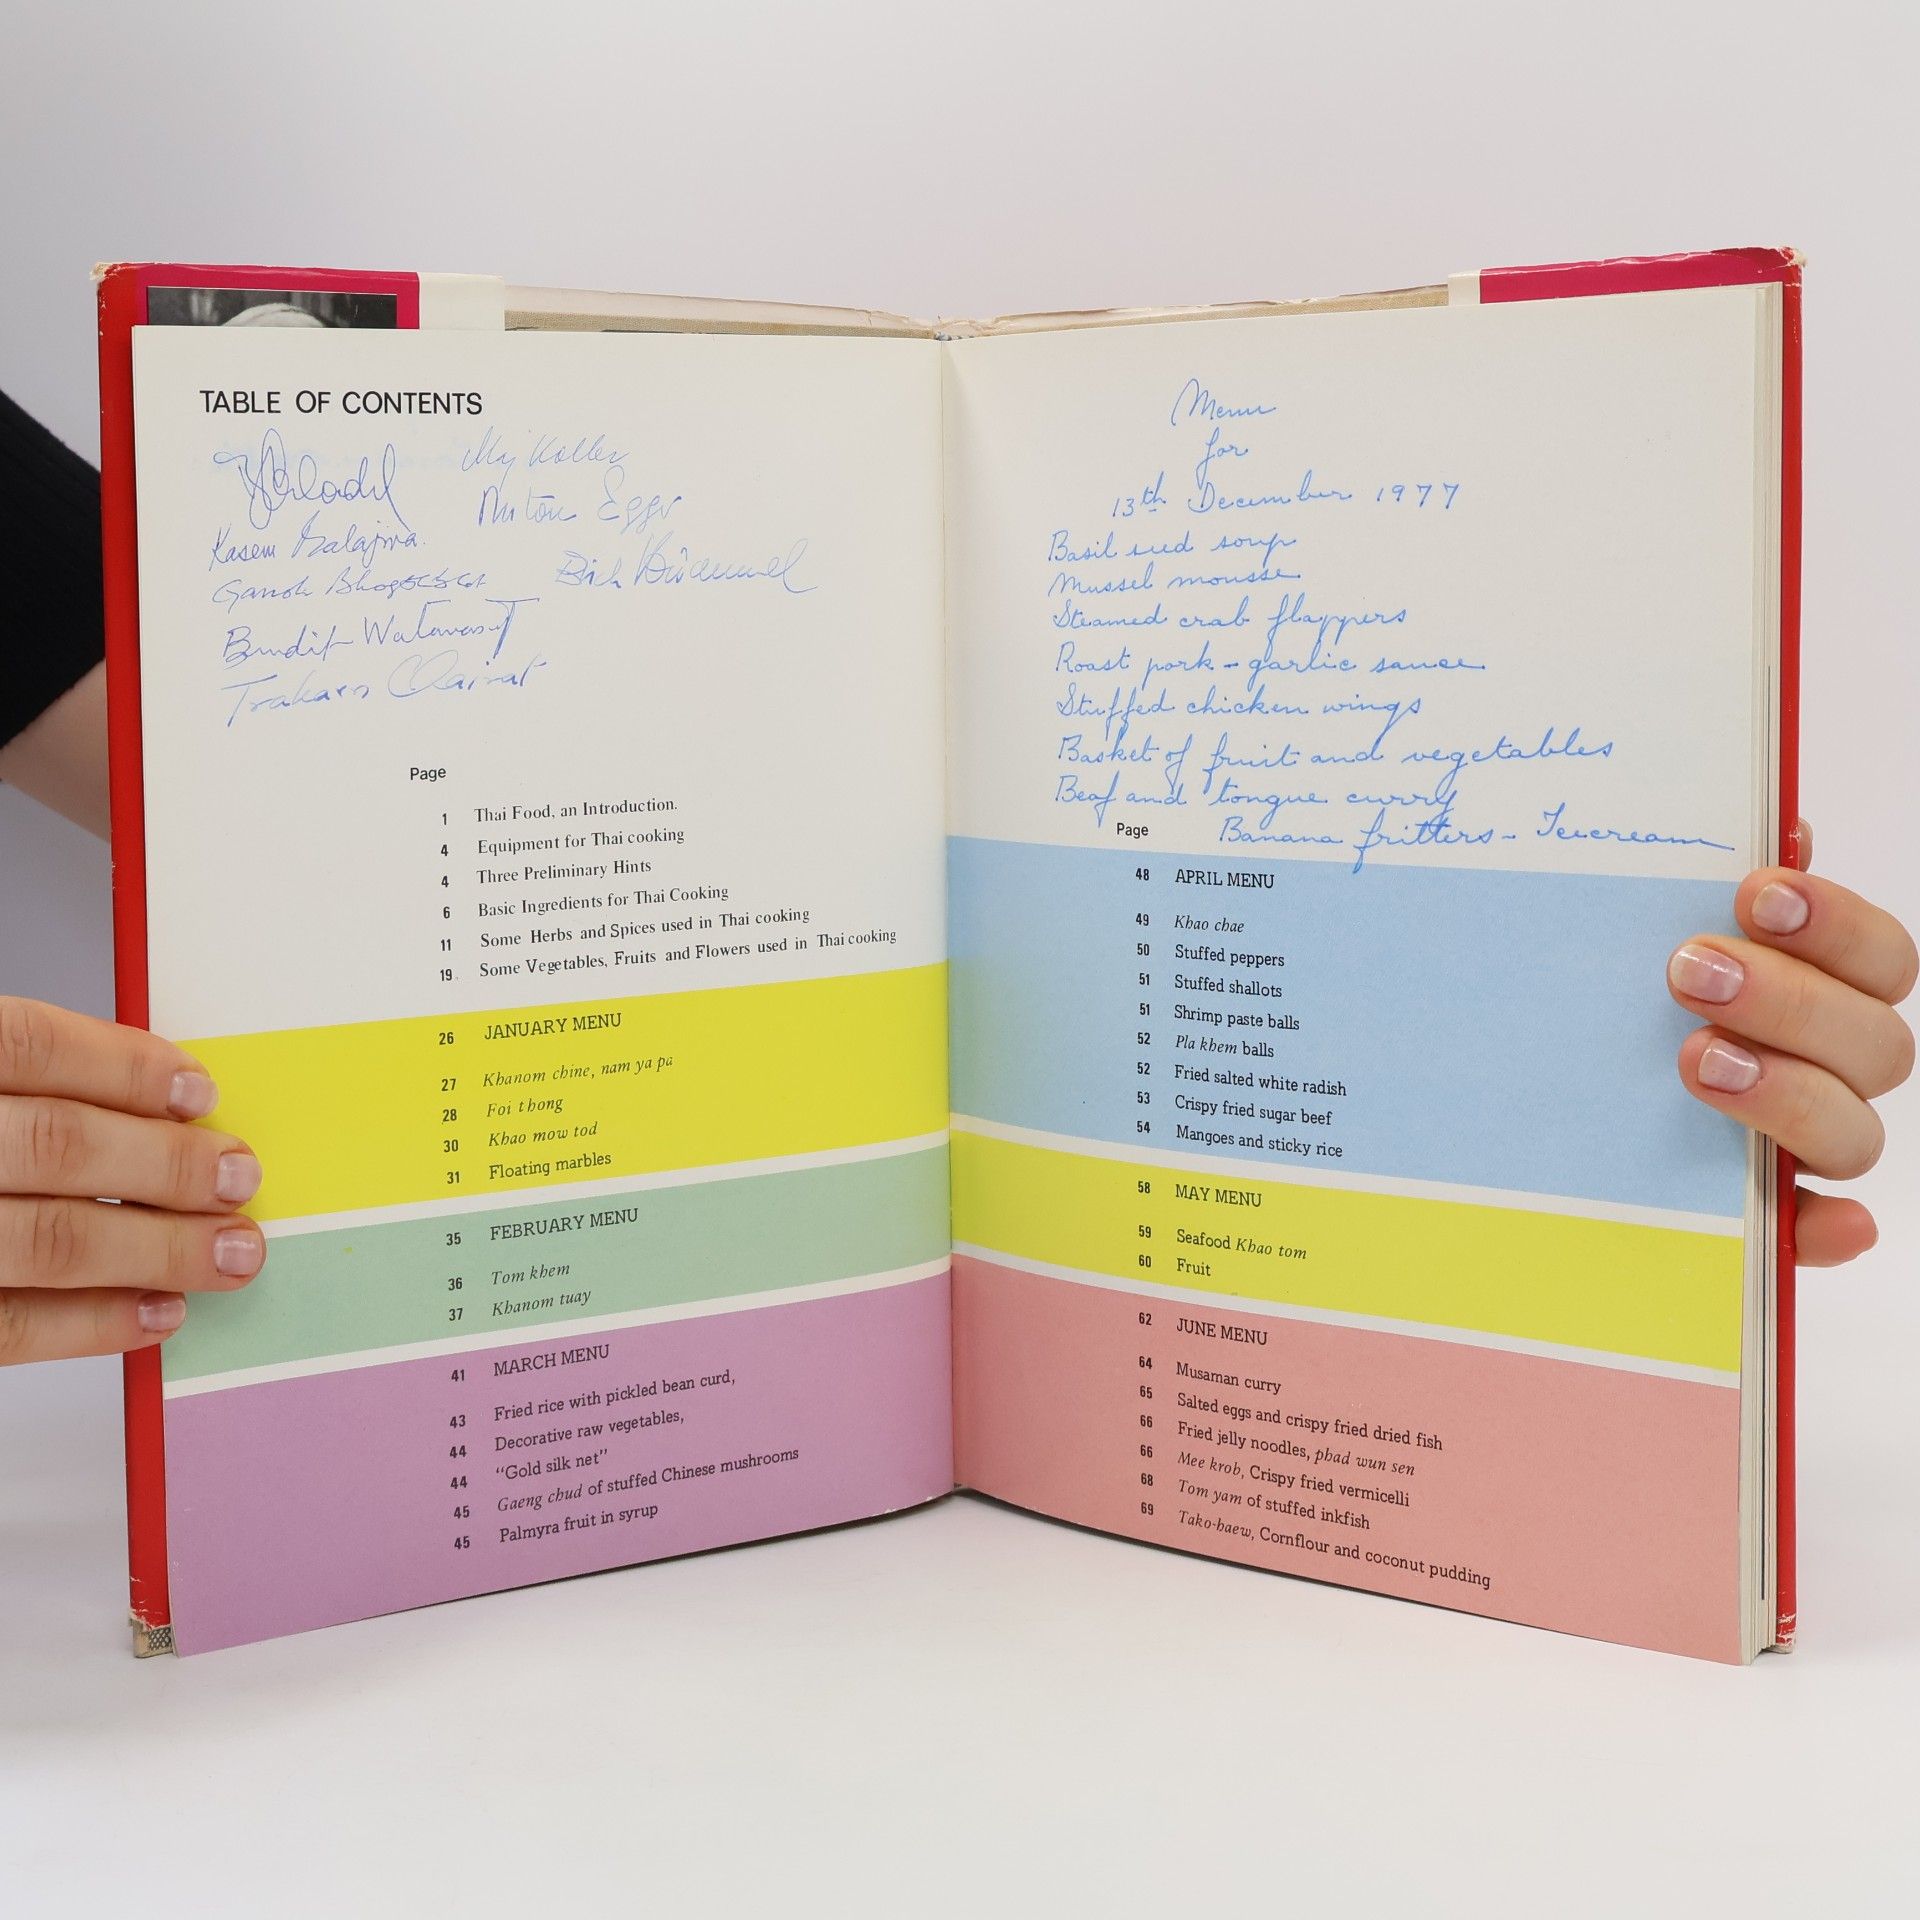 TABLE OF CONTENTS
Kasem
Bundit Watanasut
Trakarn
Page
1 Thai Food, an Introduction.
4 Equipment for Thai cooking
4 Three Preliminary Hints
6 Basic Ingredients for Thai Cooking
11 Some Herbs and Spices used in Thai cooking
19 Some Vegetables, Fruits and Flowers used in Thai cooking
26 JANUARY MENU
27 Khanom chine, nam ya pa
28 Foi thong
30 Khao mow tod
31 Floating marbles
35 FEBRUARY MENU
36 Tom khem
37 Khanom tuay
41 MARCH MENU
43 Fried rice with pickled bean curd,
44 Decorative raw vegetables,
44 “Gold silk net”
45 Gaeng chud of stuffed Chinese mushrooms
45 Palmyra fruit in syrup
Menu
for
13th December 1977
Basil seed soup
Mussel mousse
Steamed crab flappers
Roast pork - garlic sauce
Stuffed chicken wings
Basket of fruit and vegetables
Beaf and tongue curry
Banana fritters - Icecream
Page
48 APRIL MENU
49 Khao chae
50 Stuffed peppers
51 Stuffed shallots
51 Shrimp paste balls
52 Pla khem balls
52 Fried salted white radish
53 Crispy fried sugar beef
54 Mangoes and sticky rice
58 MAY MENU
59 Seafood Khao tom
60 Fruit
62 JUNE MENU
64 Musaman curry
65 Salted eggs and crispy fried dried fish
66 Fried jelly noodles, phad wun sen
66 Mee krob, Crispy fried vermicelli
68 Tom yam of stuffed inkfish
69 Tako-haew, Cornflour and coconut pudding